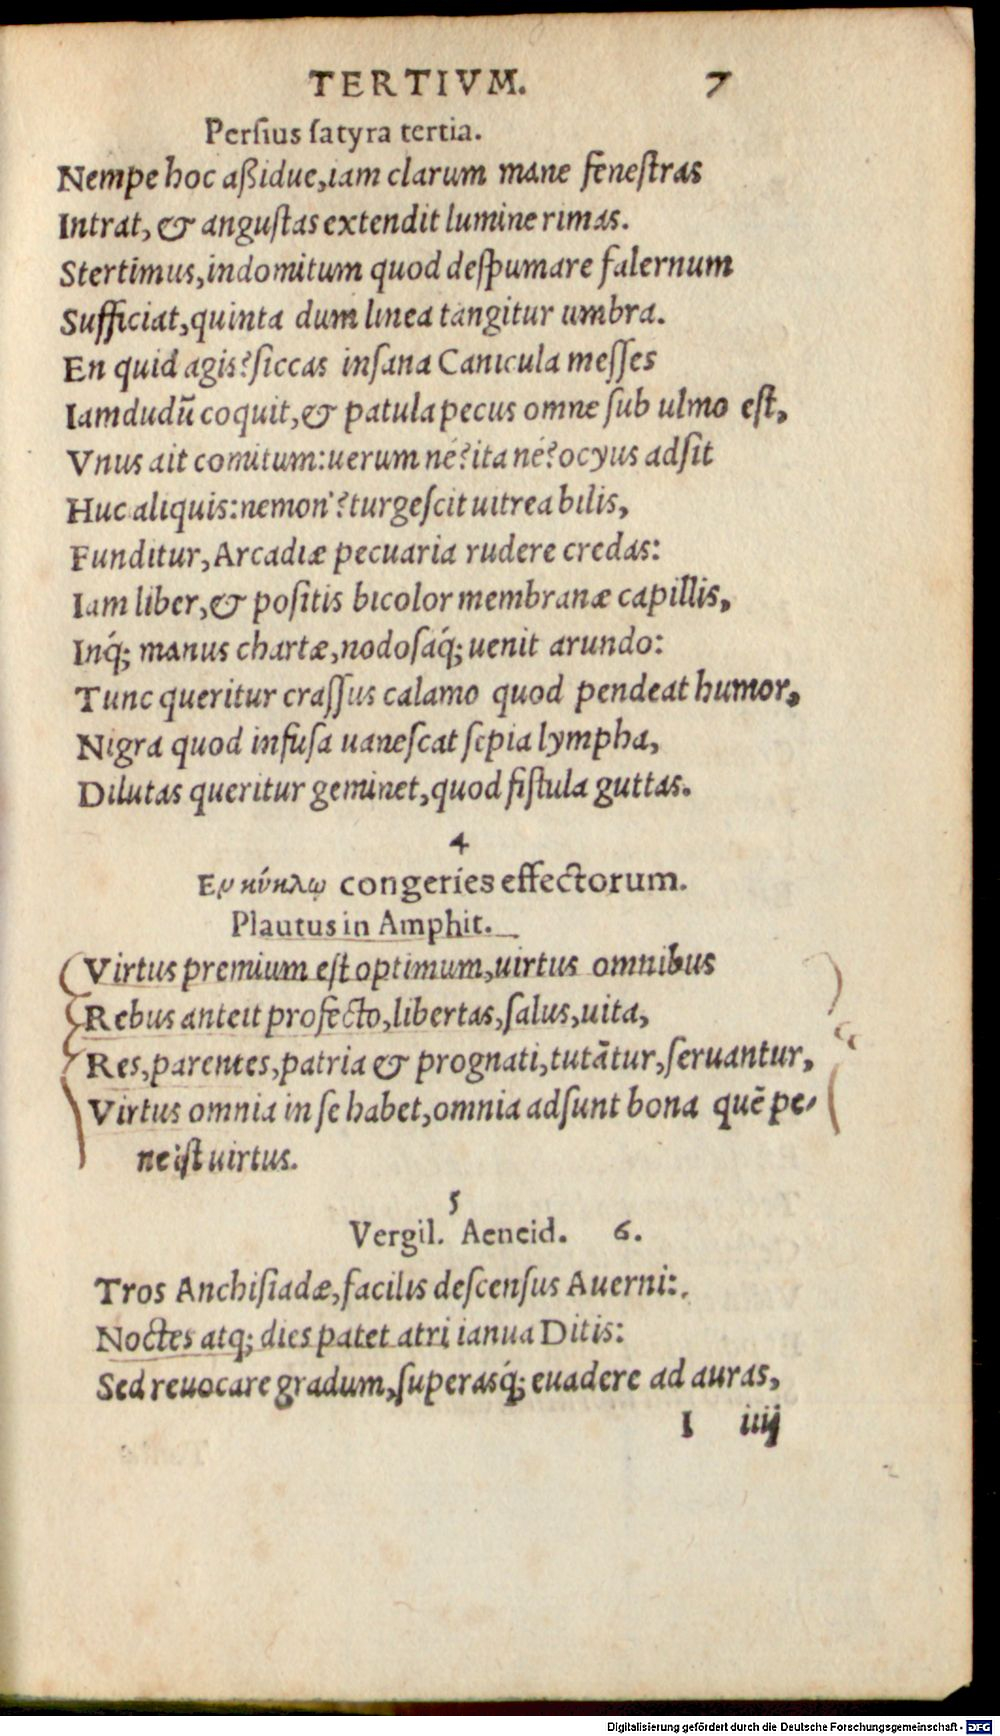 TERTIVM. 7
Persius satyra tertia.
Nempe hoc aßidue, iam clarum mane fenestras
Intrat, & angustas extendit lumine rimas.
Stertimus, indomitum quod despumare falernum
Sufficiat, quinta dum linea tangitur umbra.
En quid agis? siccas insana Canicula messes
Iamdudū coquit, & patula pecus omne sub ulmo est,
Vnus ait comitum: uerum né? ita né? ocyus adsit
Huc aliquis: nemon'? turgescit uitrea bilis,
Funditur, Arcadiæ pecuaria rudere credas:
Iam liber, & positis bicolor membranæ capillis,
Inq́; manus chartæ, nodosaq́; uenit arundo:
Tunc queritur crassus calamo quod pendeat humor,
Nigra quod infusa uanescat sepia lympha,
Dilutas queritur geminet, quod fistula guttas.
4
Εν κύκλῳ congeries effectorum.
Plautus in Amphit.
Virtus premium est optimum, uirtus omnibus
Rebus anteit profecto, libertas, salus, uita,
Res, parentes, patria & prognati, tutātur, seruantur,
Virtus omnia in se habet, omnia adsunt bona quē pe-
ne ist uirtus.
5
Vergil. Aeneid. 6.
Tros Anchisiadæ, facilis descensus Auerni:
Noctes atq; dies patet atri ianua Ditis:
Sed reuocare gradum, superasq́; euadere ad auras,
I iiij
Digitalisierung gefördert durch die Deutsche Forschungsgemeinschaft - DFG